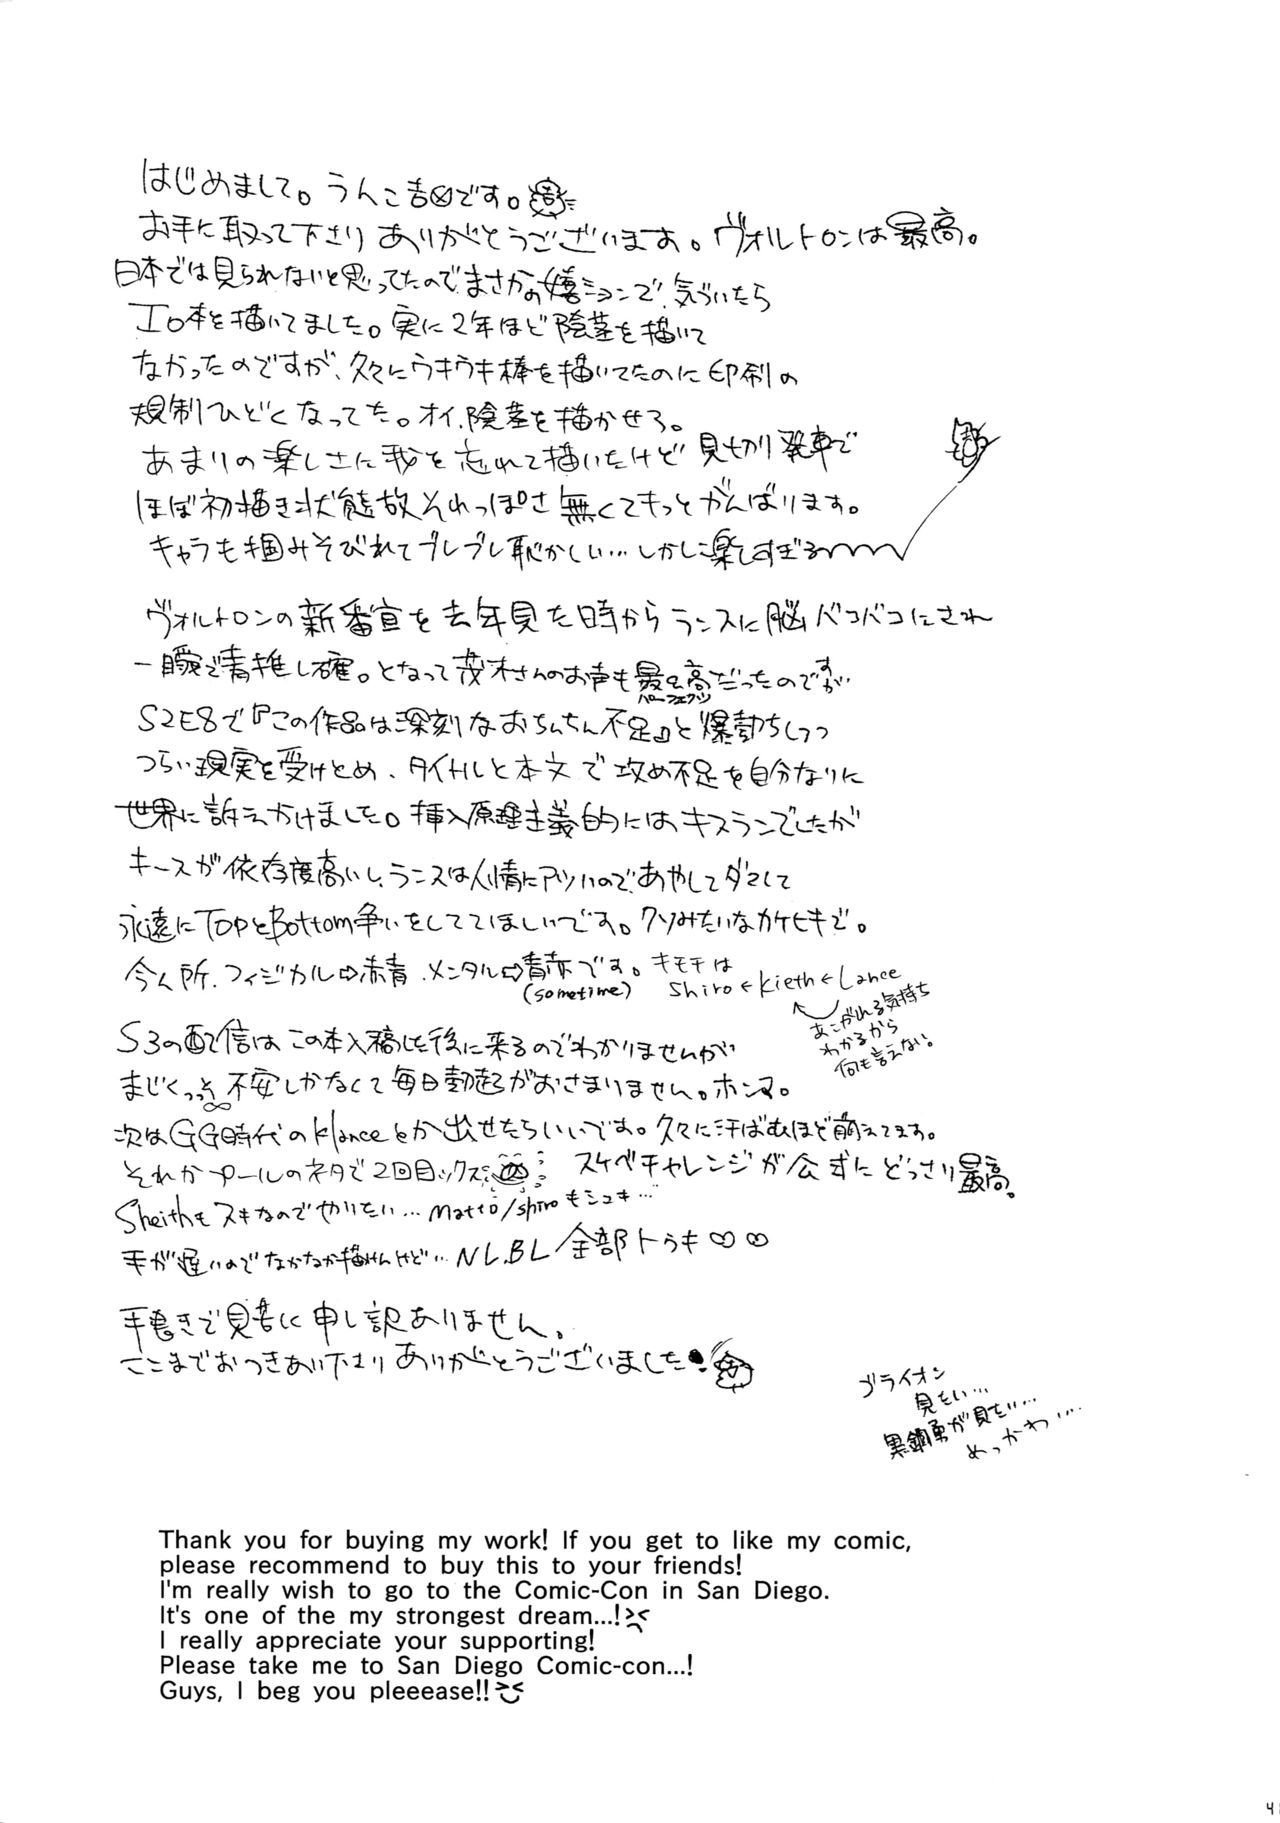 はじめまして。うんこ吉⊗です。
お手に取って下さり ありがとうございます。ヴォルトロンは最高。
日本では見られないと思ってたのでまさかの嬉ションで、気づいたら
エロ本を描いてました。実に2年ほど陰茎を描いて
なかったのですが、久々にウキウキ棒を描いてたのに印刷の
規制ひどくなってた。オイ、陰茎を描かせろ。
あまりの楽しさに我を忘れて描いたけど 見切り発車で
ほぼ初描き状態故それっぽさ無くてもっとがんばります。
キャラも掴みそびれてブレブレ恥かしい…しかし楽しすぎる
ヴォルトロンの新番宣を去年見た時からランスに脳バコバコにされ
一瞬で青推し確。となって茂木さんのお声も最&高だったのですが
パーフェクツ
S2E8で『この作品は深刻なおちんちん不足』と爆勃ちしつつ
つらい現実を受けとめ、タイトルと本文で攻め不足を自分なりに
世界に訴えかけました。挿入原理主義的にはキスランでしたが
キースが依存度高いし、ランスは人情にアツいので、あやしてダマして
永遠にTopとBottom争いをしててほしいです。クソみたいなカケヒキで。
今ん所、フィジカル⇨赤青、メンタル⇨青赤です。キモチは
(sometime) Shiro←Kieth←Lance
あこがれる気持ち
わかるから
何も言えない。
S3の配信はこの本入稿した後に来るのでわかりませんが
まじくっそ不安しかなくて毎日勃起がおさまりません。ホンマ。
次はGG時代のklanceとか出せたらいいです。久々に汗ばむほど萌えてます。
それかプールのネタで2回目ックス スケベチャレンジが公式にどっさり最高。
Sheithもスキなのでやりたい…matto/shiroもシュキ…
手が遅いのでなかなか描けんけど…NL.BL全部トゥキ♡♡
手書きで見苦に申し訳ありません。
ここまでおつきあい下さり ありがとうございました!
ゴライオン
見たい…
黒鋼勇が見たい…
めっかわ…
Thank you for buying my work! If you get to like my comic,
please recommend to buy this to your friends!
I'm really wish to go to the Comic-Con in San Diego.
It's one of the my strongest dream...!
I really appreciate your supporting!
Please take me to San Diego Comic-con...!
Guys, I beg you pleeease!!